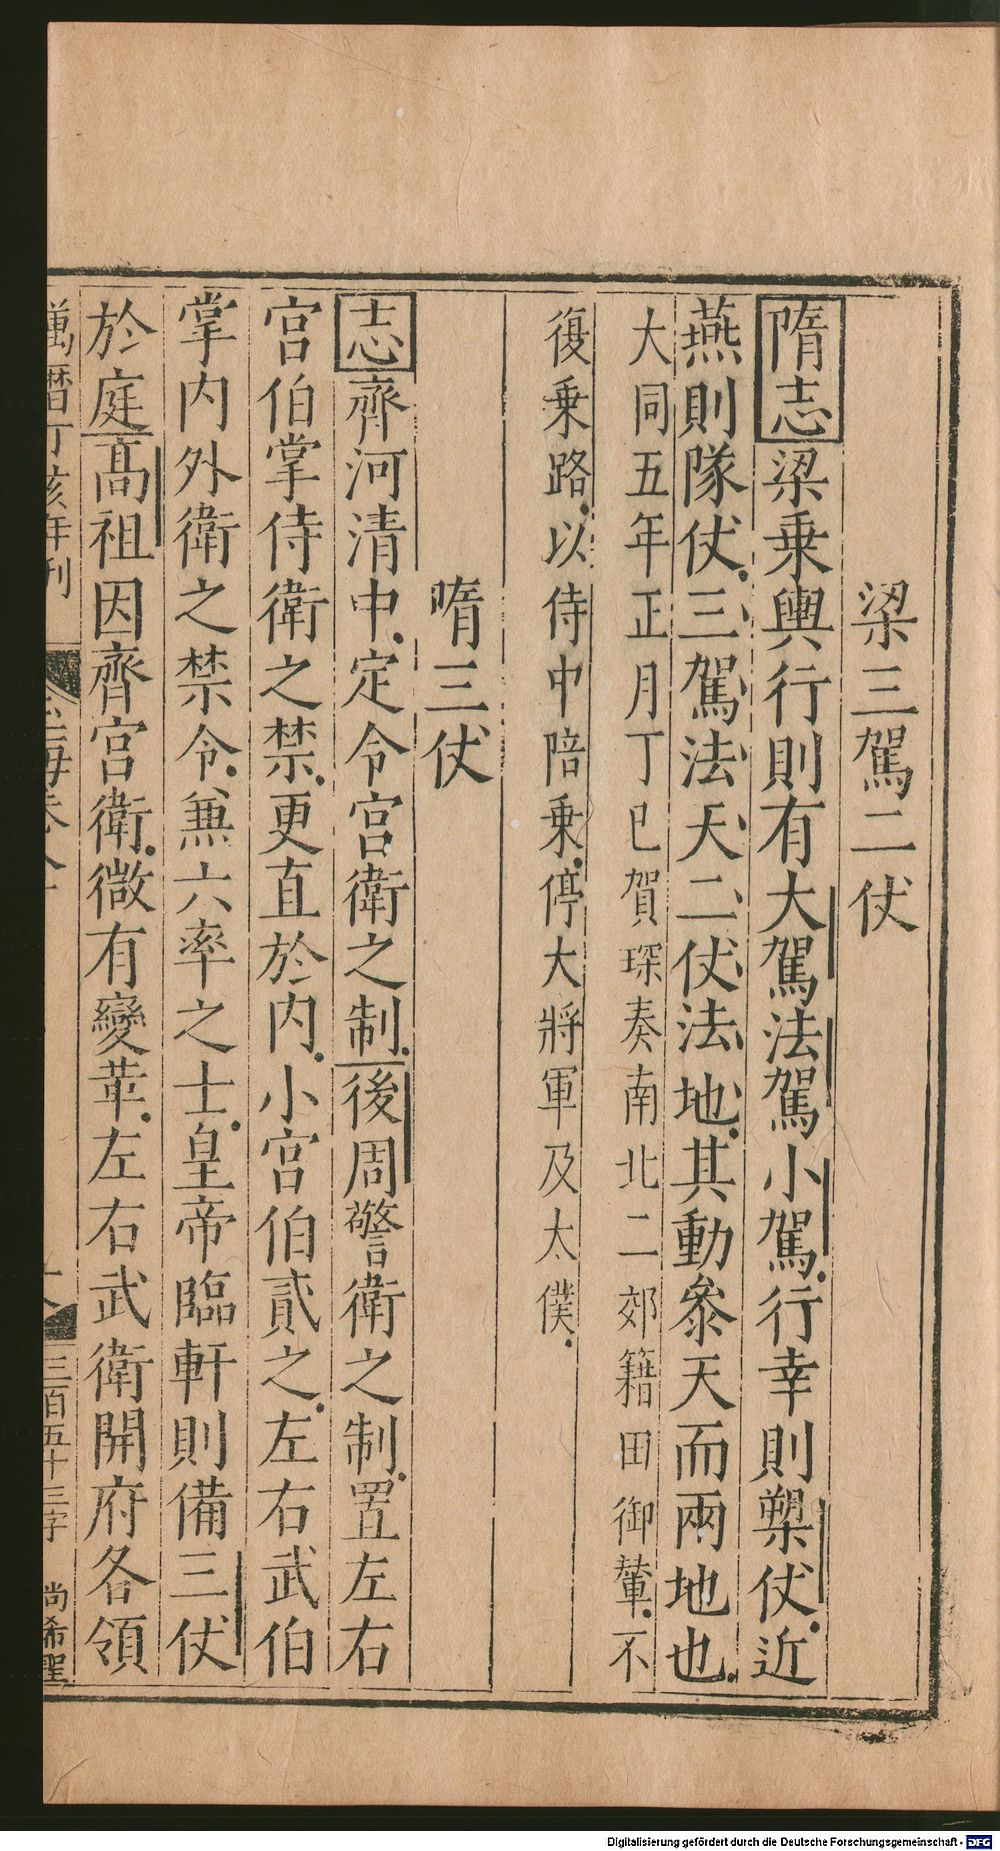 梁三駕二仗
隋志梁乗輿行則有大駕法駕小駕行幸則槊仗近
燕則隊仗三駕法天二仗法地其動叅天而兩地也
大同五年正月丁巳賀琛奏南北二郊籍田御輦不
復乗路以侍中陪乗停大將軍及太僕
隋三仗
志齊河清中定令宮衛之制後周警衛之制置左右
宮伯掌侍衛之禁更直於內小宮伯貳之左右武伯
掌內外衛之禁令兼六率之士皇帝臨軒則備三仗
於庭髙祖因齊宮衛微有變革左右武衛開府各領
萬曆丁亥年刊
三百五十三字 尚希聖
Digitalisierung gefördert durch die Deutsche Forschungsgemeinschaft - DFG